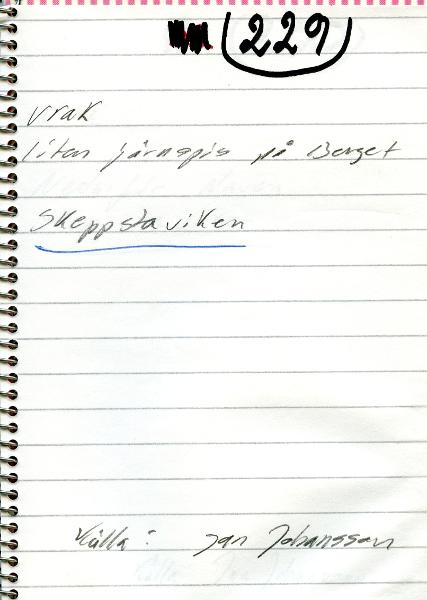 229
vrak
liten järnspis på Berget
Skeppstaviken
Källa: Jan Johansson